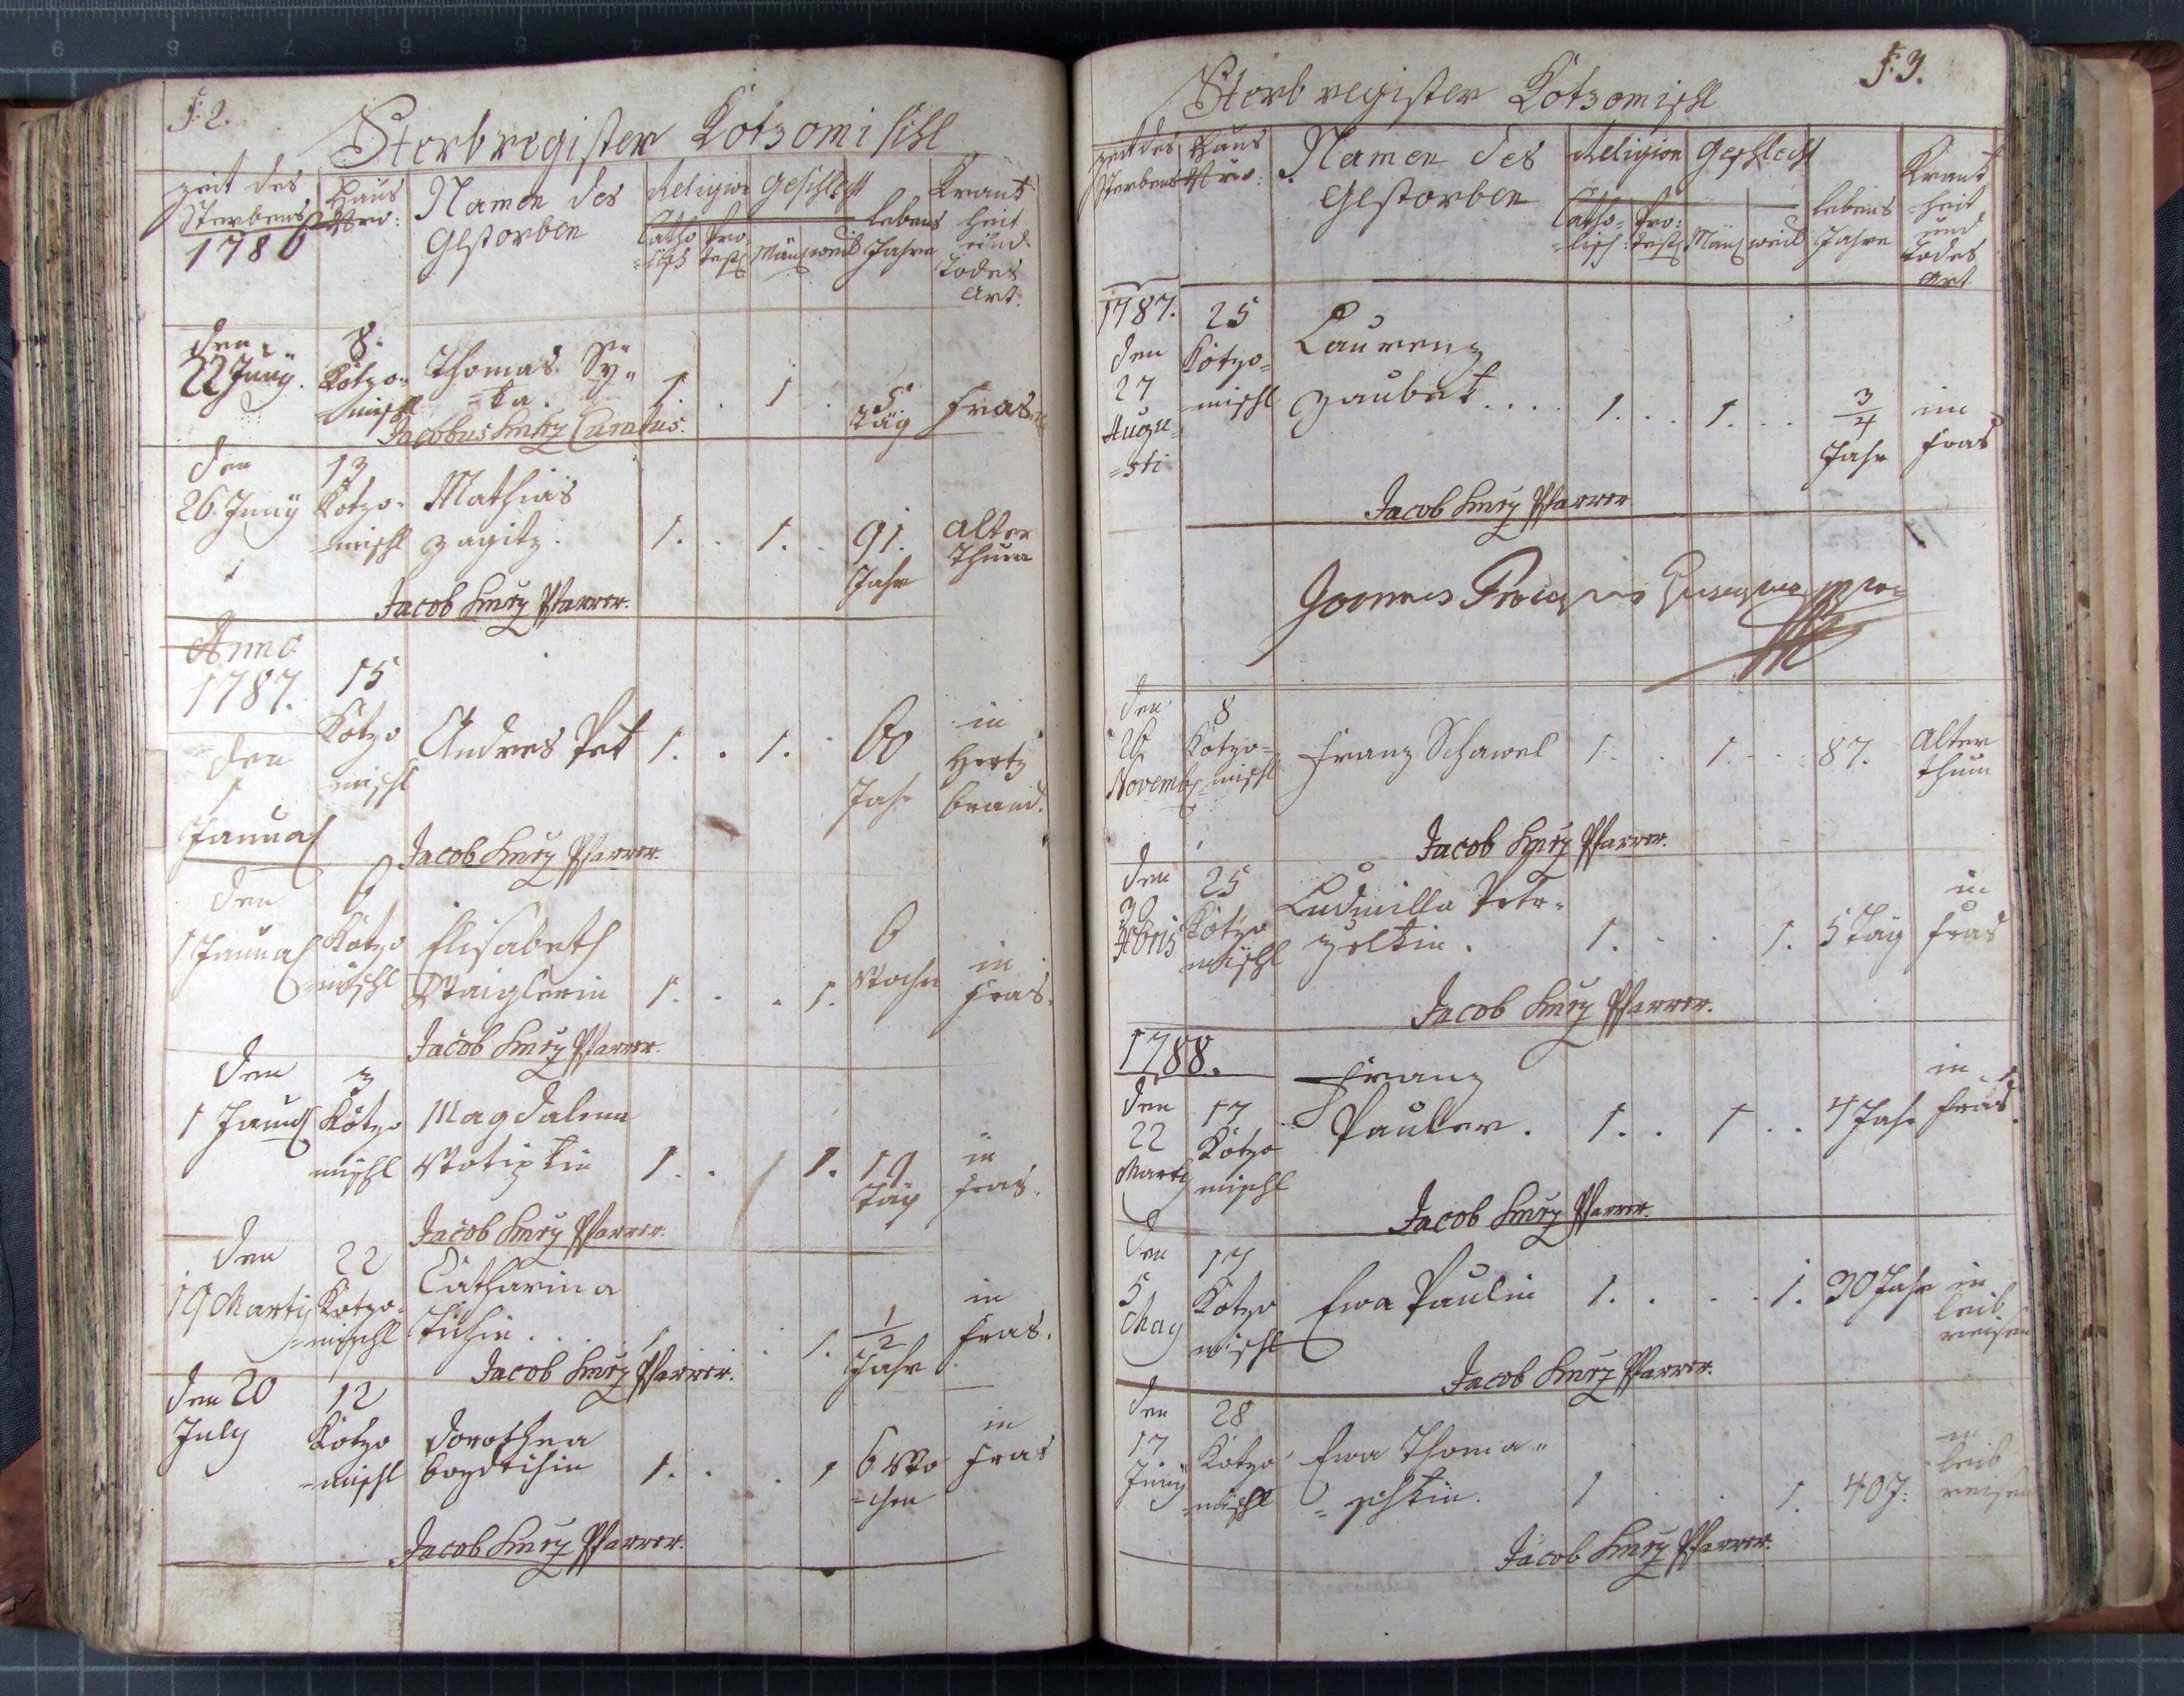 f: 2.
Sterbregister Kotzomischl
Zeit des Sterbens 1786
Haus Nro:
Namen des Gestorben
Religion
Catholisch
Protest
Geschlecht
Män
weib
lebens Jahre
Krankheit und Todes Art:
den 22 Juny. 8. Kotzo=mischl Thomas Sy=ka. 1. . 1 . 5 Täg Fras
Jacobus Curatus.
den 26 Juny 13 Kotzo=mischl Mathias Zagitz. 1. . 1. . 91. Jahr Alter Thum
Jacob Pfarrer.
Anno 1787.
den 1 Janua 15 Kotzo mischl Andres Pet 1. . 1. . 60 Jahr in Hertz brand.
Jacob Pfarrer.
den 1 Janua 6 Kotzo mischl Elisabeth Waiglerin 1. . . 1. 6 Wochn in Fras.
Jacob Pfarrer.
den 1 Janua 3 Kotzo mischl Magdalena Wotipkin 1. . 1. 19 Täg in Fras.
Jacob Pfarrer.
den 19 Marti 22 Kotzo=mischl Catharina Tichin. . . 1 . . 1. 1/2 Jahr in Fras.
Jacob Pfarrer.
den 20 July 12 Kotzo=mischl Dorothea 1. . . 1 6 Wo=chen in Fras
Jacob Pfarrer.
f: 3.
Sterbregister Kotzomischl
Zeit des Sterbens
Haus Nro:
Namen des Gestorben
Religion
Catho=lisch:
Pro:test
Geschlecht
Män
weib
lebens Jahre
Krankheit und Todes Art
1787. den 27 Augu=sti 25 Kotzo=mischl Laurenz Zaubek. . . . 1. . . 1. . . 3/4 Jahr im Fras
Jacob Pfarrer
Joannes
den 26 Novemb 8 Kotzo=mischl Franz Schawel 1. . 1. . . 87. Alter thum
Jacob Pfarrer.
den 25 Kotzo mischl Ludmilla 1. . . 1. 5 Täg in Fras
Jacob Pfarrer.
1788.
den 22 Marti 17 Kotzo mischl Franz Pauler. 1. . 1 . . 4 Jahr in Fras.
Jacob Pfarrer.
den 5 May 17 Kotzo mischl Ewa Paulin 1. . . . 1. 30 Jahr in leib reisen
Jacob Pfarrer.
den 17 Juny 28 Kotzo=mischl Ewa Thoma=schkin. 1 . . 1. 40 J: in leib reisen
Jacob Pfarrer.